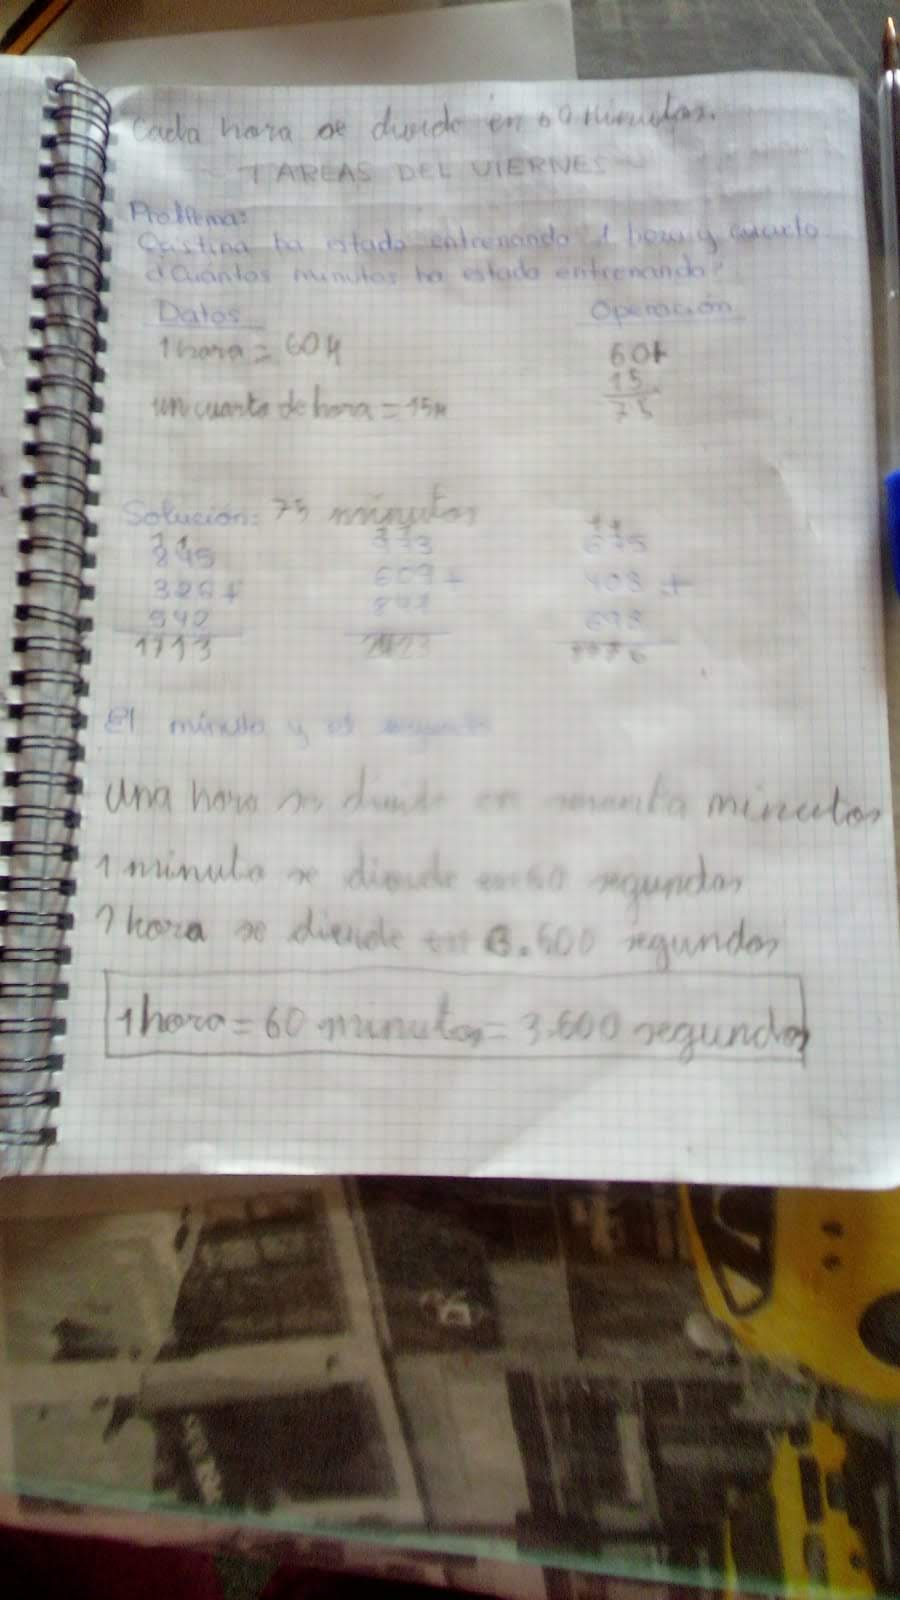 Cada hora se divide en 60 minutos.
TAREAS DEL VIERNES
Problema:
Cristina ha estado entrenando 1 hora y cuarto.
¿Cuántos minutos ha estado entrenando?
Datos Operación
1 hora = 60 M 60+
un cuarto de hora = 15M 15
75
Solución: 75 minutos
845 675
326+ 607+ 408+
542
1713
El minuto y el segundo
Una hora se divide en sesenta minutos
1 minuto se divide en 60 segundos
1 hora se divide en 3.600 segundos
1 hora = 60 minutos = 3.600 segundos